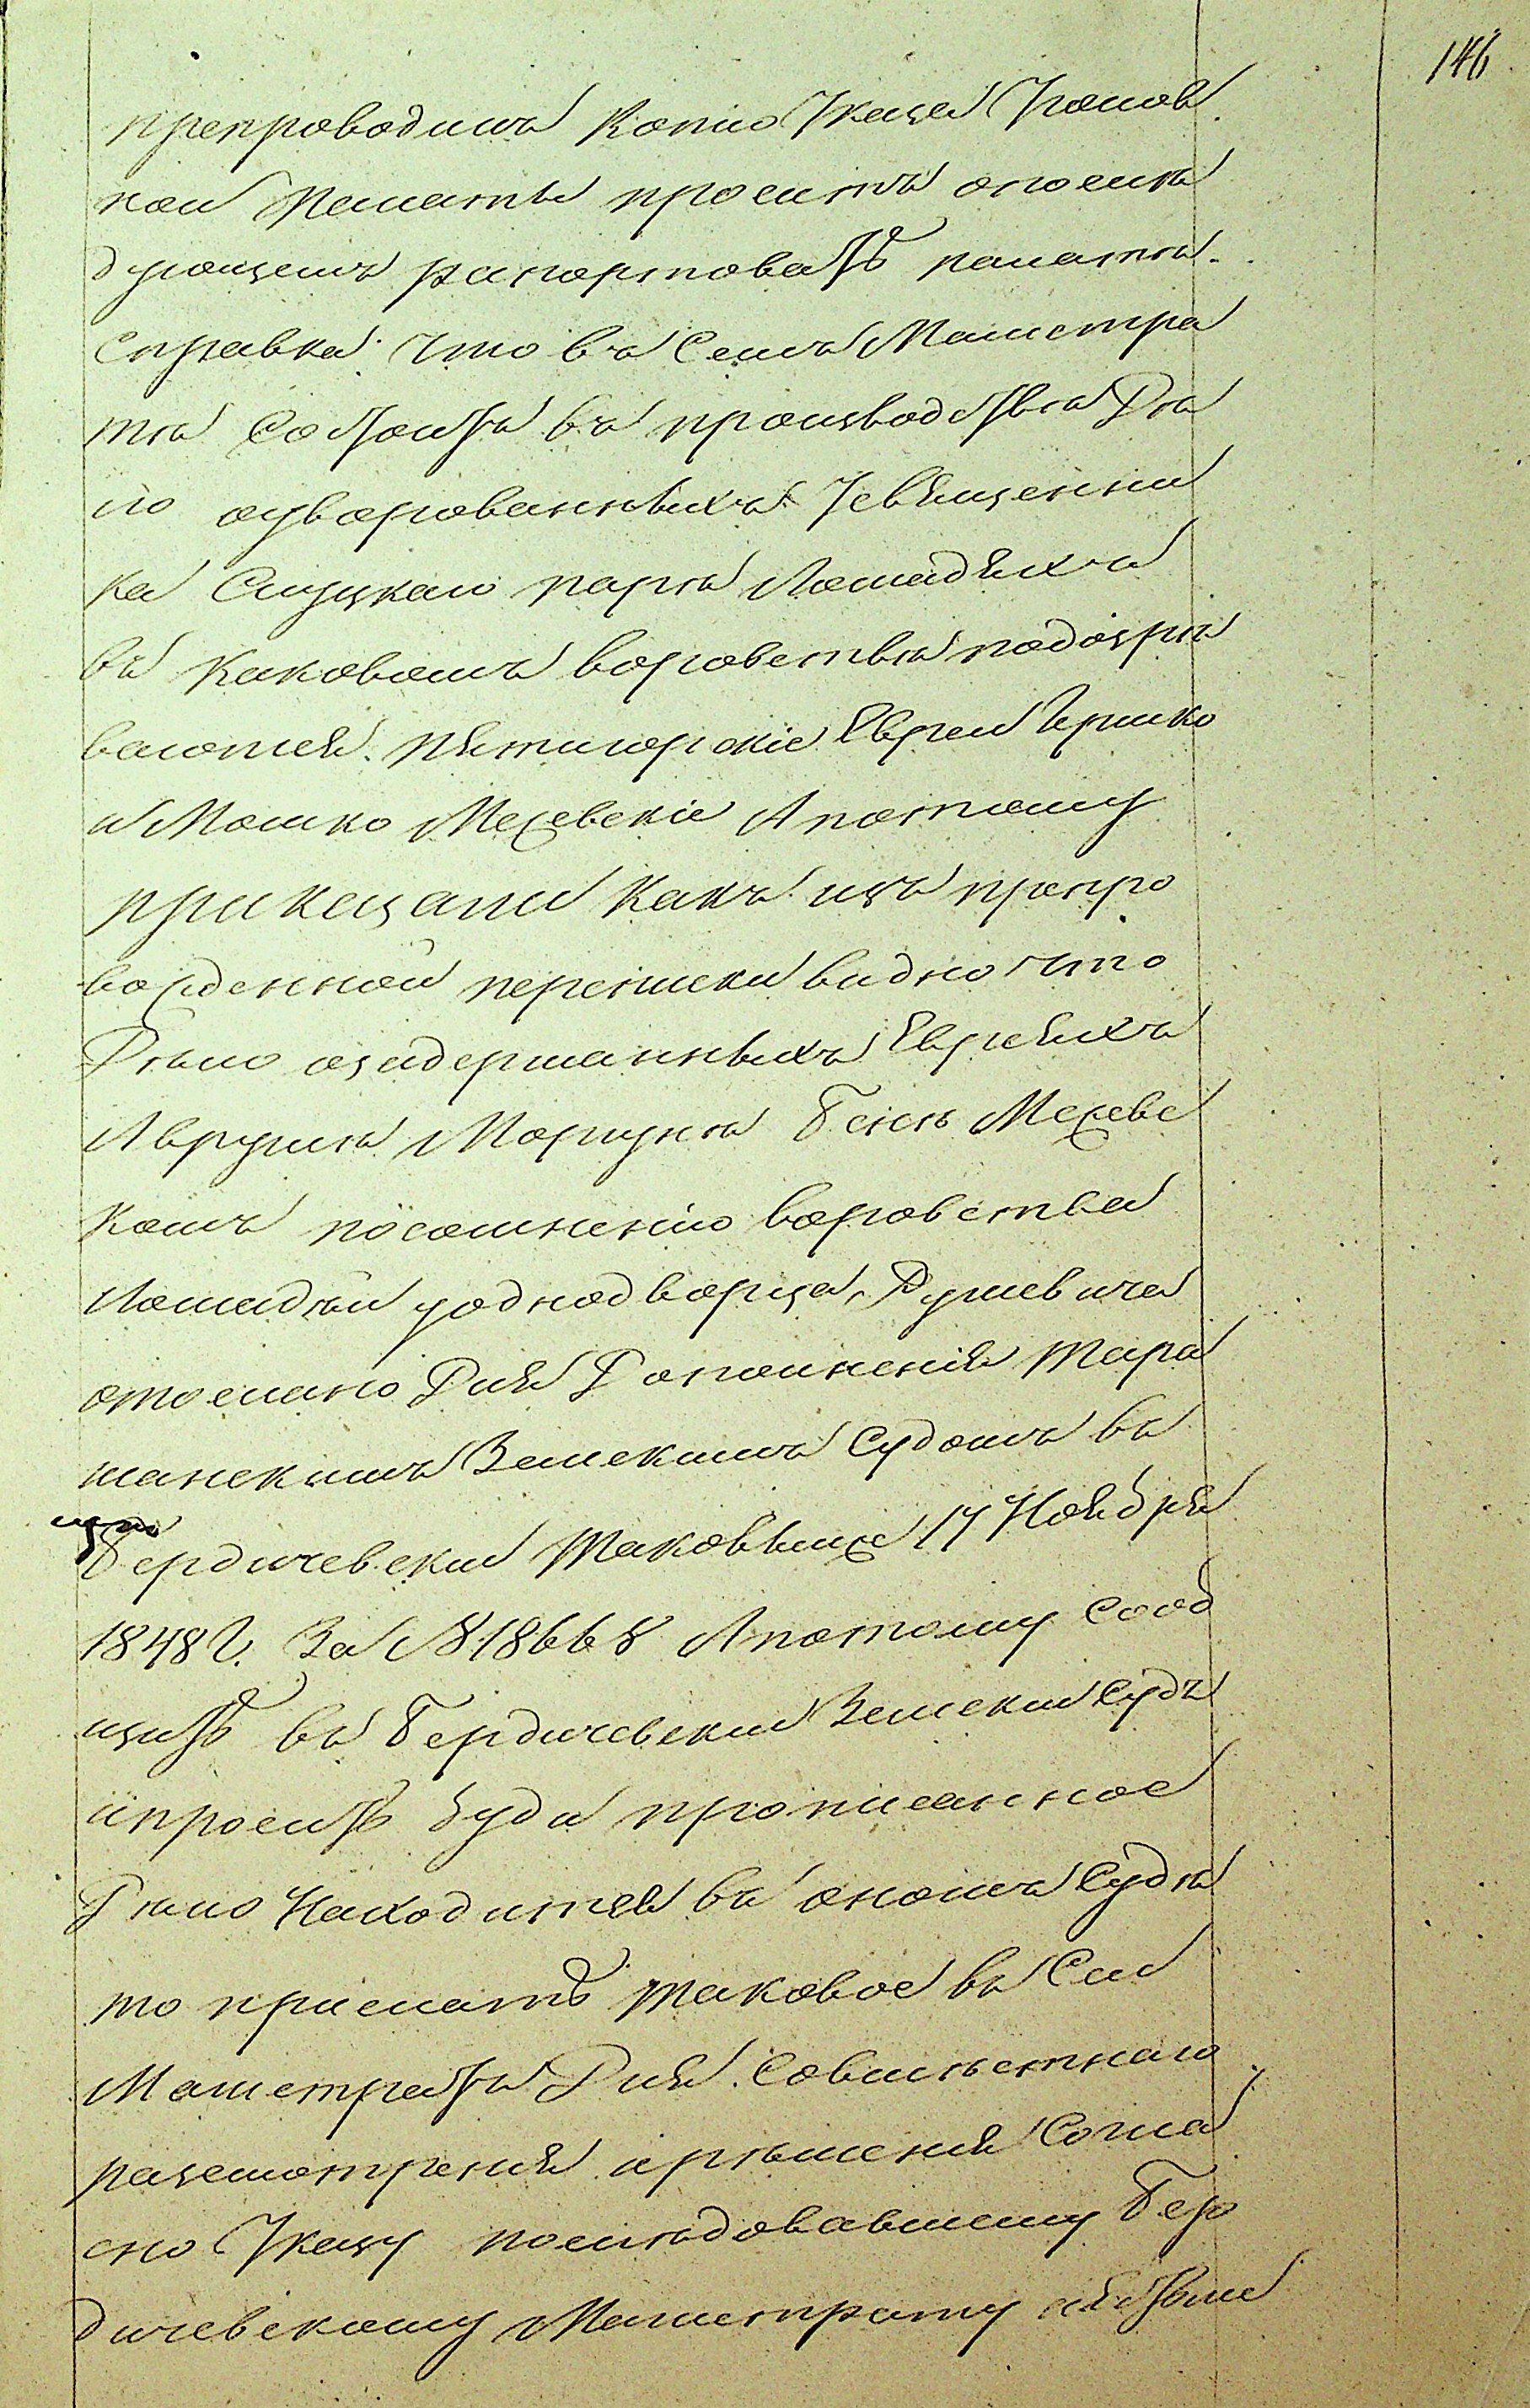 146
препроводилъ Копію Указа Уголов
ной Палаты проситъ опослѣ
дующемъ рапортовать палатѣ.
Справка: Что въ Семъ Магистра
тѣ Состоитъ въ производствѣ Дѣ
ло оуворованныхъ Усвященни
ка Слуцкаго парѣ Лошадяхъ
въ Каковомъ воровствѣ подозрѣ
ваются. Пятигорскіе Евреи Гершко
и Мошко Межевскіе Апотому
приказали Какъ изъ препро
вожденной переписки видно что
Дѣло озадержанныхъ Евреяхъ
Аврумѣ Моргунѣ Бенѣ Межевс
комъ посомненію воровства
Лошадѣй уоднодворца,
отослано Для Дополненія Тара
щанскимъ Земскимъ Судомъ въ
Бердичевскій Таковыже 17 Ноября
1848 г. За № 18668 Апотому Сооб
щить въ Бердичевскій Земскій Судъ
ипросить буде прописанное
Дѣло Находится въ ономъ Судѣ
то прислать таковое въ Сей
Магистратъ Для Совмѣстнаго
разсмотренія ирѣшенія Согла
сно Указу послѣдовавшему Бер
дичевскому Магистрату